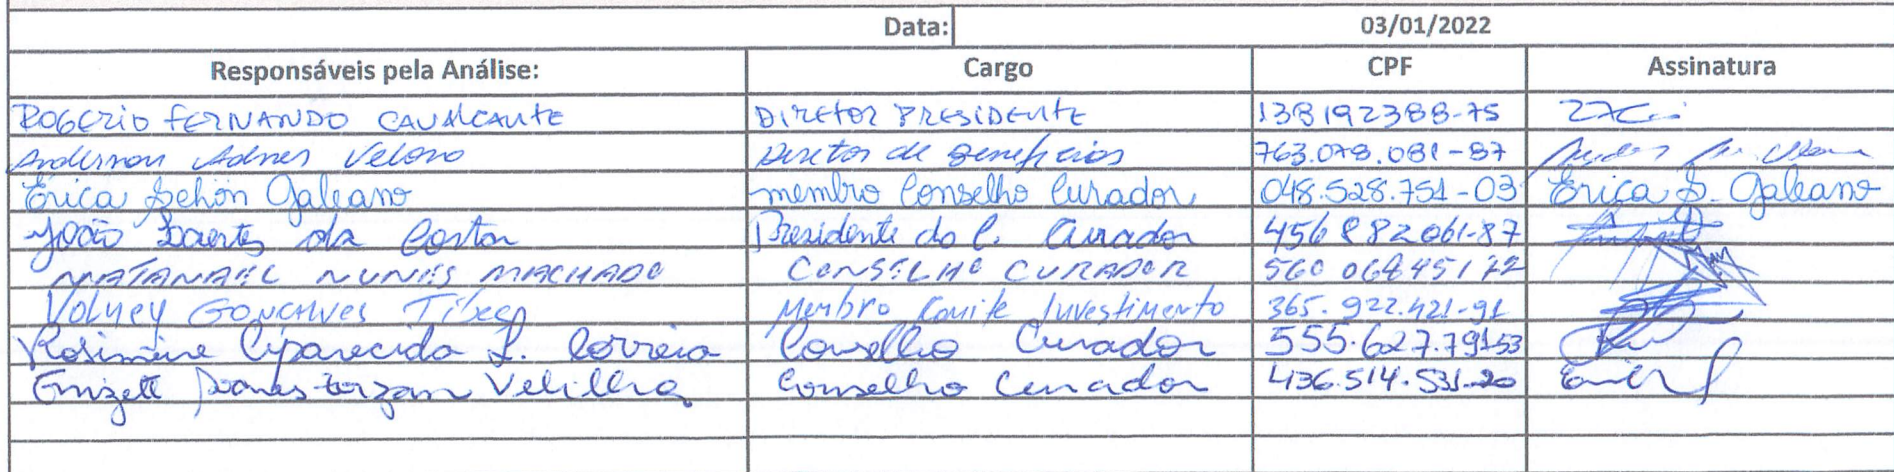 Data: 03/01/2022
Responsáveis pela Análise: Cargo CPF Assinatura
ROGERIO FERNANDO CAVALCANTE DIRETOR PRESIDENTE 138192388-75
Anderson Adnes Veloso Diretor de Beneficios 763.078.081-87
Érica Sehön Galeano membro Conselho Curador 048.528.751-03 Érica S. Galeano
João Laertes da Costa Presidente do C. Curador 456882061-87
NATANAEL NUNES MACHADO CONSELHO CURADOR
Volney GONCALVES Membro Comite Investimento 365.922.421-91
Rosimeire Aparecida L. Correia Conselho Curador 555.627.79153
Soares Velilha Conselho Curador 436.514.531-20